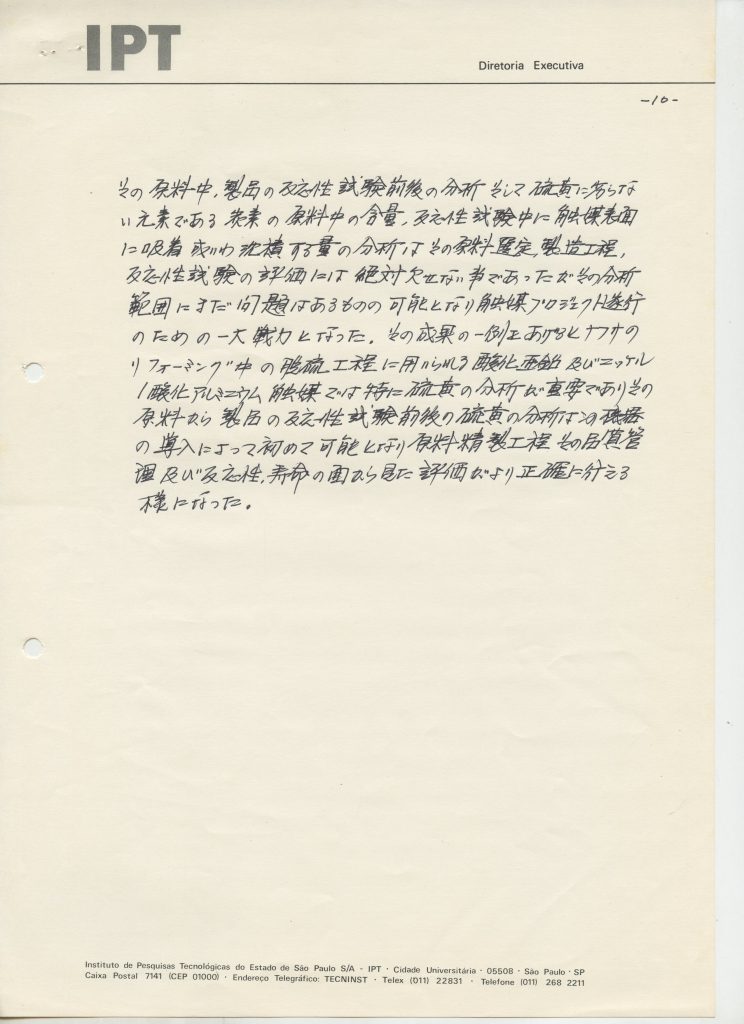 IPT
Diretoria Executiva
-10-
その原料中、製品の反応性試験前後の分析 そして硫黄に劣らな
い元素である炭素の原料中の含量、反応性試験中に触媒表面
に吸着或いわ沈積する量の分析はその原料選定、製造工程、
反応性試験の評価には絶対欠せない事であったがその分析
範囲にまだ問題はあるものの可能となり触媒プロジェクト遂行
のための一大戦力となった。その成果の一例をあげるとナフサの
リフォーミング中の脱硫工程に用いられる酸化亜鉛及びニッケル
/酸化アルミニウム触媒では特に硫黄の分析が重要でありその
原料から製品の反応性試験前後の硫黄の分析はこの機器
の導入によって初めて可能となり原料精製工程 その品質管
理及び反応性、寿命の面から見た評価がより正確に行える
様になった。
Instituto de Pesquisas Tecnológicas do Estado de São Paulo S/A · IPT · Cidade Universitária · 05508 · São Paulo · SP
Caixa Postal 7141 (CEP 01000) · Endereço Telegráfico: TECNINST · Telex (011) 22831 · Telefone (011) 268 2211